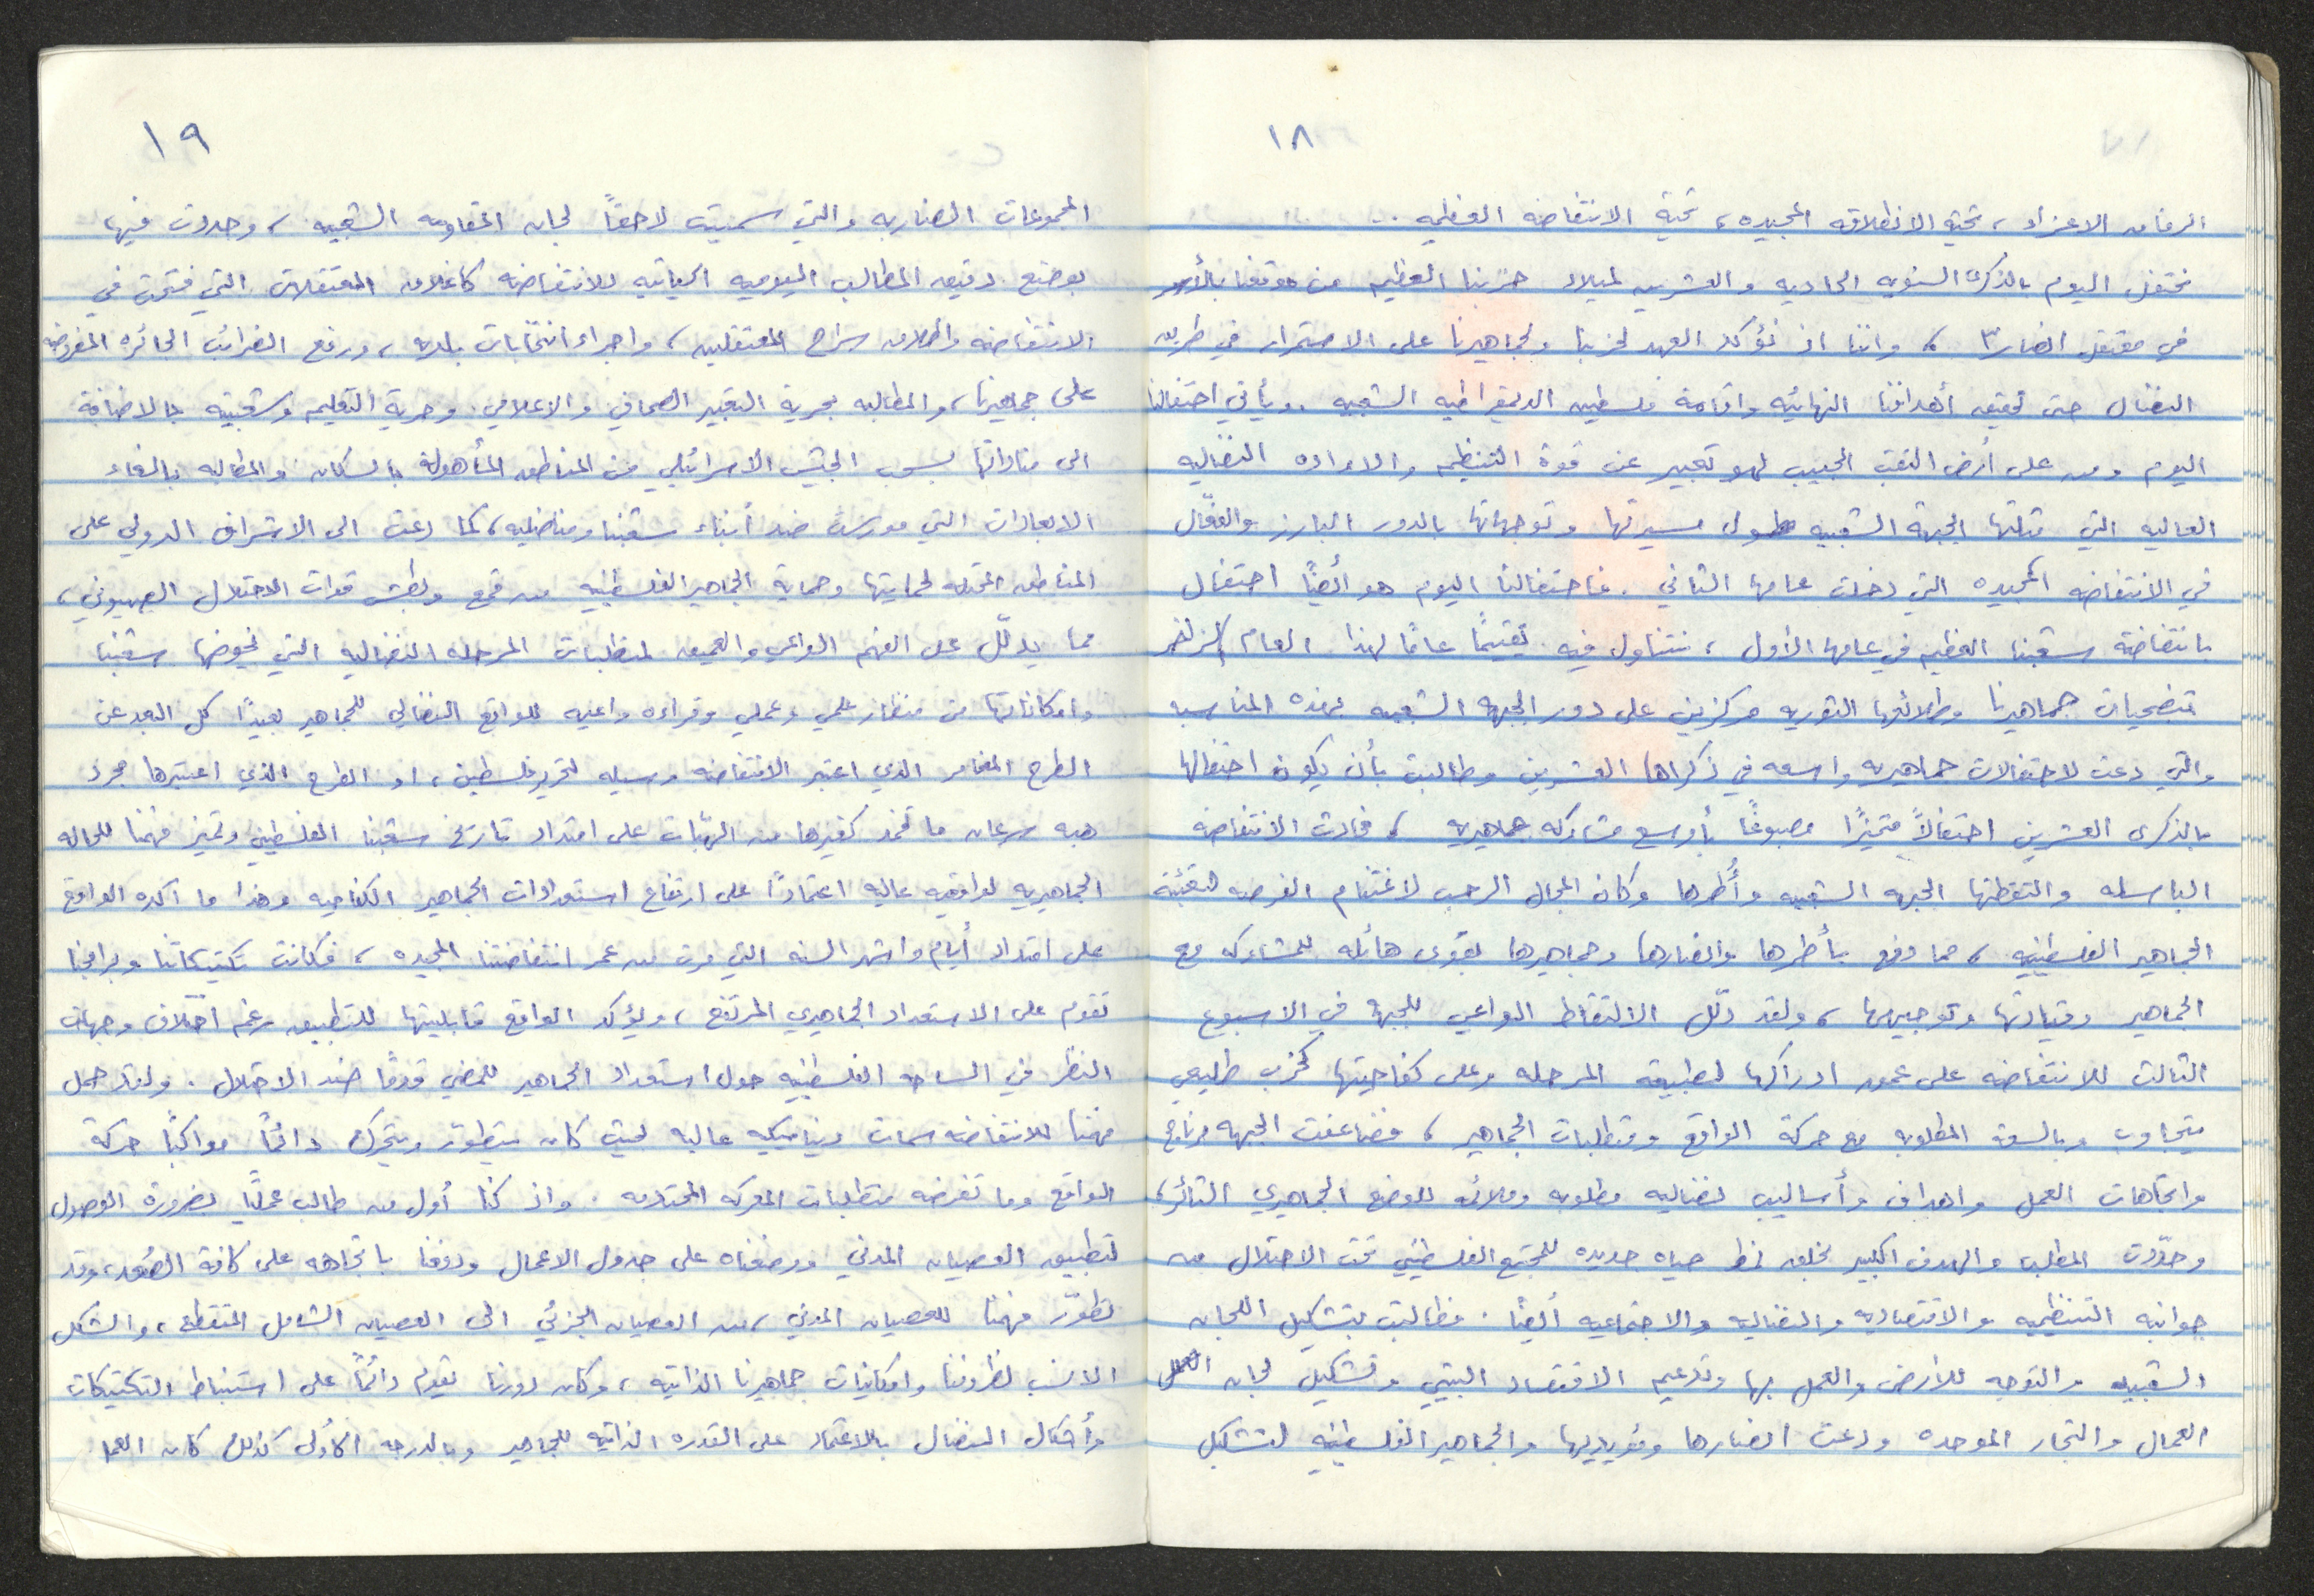 ١٨
الرفاق الاعزاء ، تحية الانطلاقه المجيده ، تحية الانتفاضه العظيمه ..
نحتفل اليوم بالذكرى السنويه الحاديه والعشرين لميلاد حزبنا العظيم من موقفنا بالأسر
في معتقل انصار ٣ ، واننا اذ نؤكد العهد لحزبنا ولجماهيرنا على الاستمرار في طريق
النضال حتى تحقيق أهدافنا النهائيه واقامة فلسطين الديمقراطيه الشعبيه . ويأتي احتفالنا
اليوم ومن على أرض النقب الحبيب لهو تعبير عن قوة التنظيم والاراده النضاليه
العاليه التي مثلتها الجبهة الشعبيه طول مسيرتها وتوجهاتها بالدور البارز والفعّال
في الانتفاضه المجيده التي دخلت عامها الثاني . فاحتفالنا اليوم هو أيضًا احتفال
بانتفاضة شعبنا العظيم في عامها الأول ، نتناول فيه تقيمًا عامًا لهذا العام الزاخر
بتضحيات جماهيرنا وطلائعها الثوريه مركزين على دور الجبهه الشعبيه بهذه المناسبه
والتي دعت لاحتفالات جماهيريه واسعه في ذكراها العشرين وطالبت بأن يكون احتفالها
بالذكرى العشرين احتفالاً متميزًا مصبوغًا بأوسع مشاركه جماهيريه ، فجاءت الانتفاضه
الباسله والتقطتها الجبهه الشعبيه وأُطرها وكان المجال الرحب لاغتنام الفرصه لتعبئة
الجماهير الفلسطينيه ، مما دفع بأطرها وانصارها وجماهيرها بقوى هائله للمشاركه مع
الجماهير وقيادتها وتوجيهها ، ولقد دلّل الالتقاط الواعي للجبهه في الاسبوع
الثالث للانتفاضه على عمق ادراكها لطبيعة المرحله وعلى كفاحيتها كحزب طليعي
يتجاوب وبالسرعة المطلوبه مع حركة الواقع ومتطلبات الجماهير ، فضاعفت الجبهه برنامج
واتجاهات العمل واهداف وأساليب نضاليه مطلوبه وملائمه للوضع الجماهيري الثائر ،
وحدّدت المطلب والهدف الكبير بخلق نمط حياه جديده للمجتمع الفلسطيني تحت الاحتلال من
جوانبه التنظيميه والاقتصاديه والنضاليه والاجتماعيه أيضًا . فطالبت بتشكيل اللجان
الشعبيه والتوجه للأرض والعمل بها وتدعيم الاقتصاد البيتي وتشكيل لجان
العمال والتجار الموحده ودعت انصارها ومؤيديها والجماهير الفلسطينيه لتشكيل
١٩
المجموعات الضاربه والتي سميت لاحقاً لجان المقاومه الشعبيه ، وحددت فيها
بوضع دقيق المطالب اليوميه الحياتيه للانتفاضه كاغلاق المعتقلات التي فتحت في
الانتفاضه واطلاق سراح المعتقلين ، واجراء انتخابات بلديه ، ورفع الضرائب الجائره المفروضه
على جماهيرنا ، والمطالبه بحرية التعبير الصحافي والاعلامي . وحرية التعليم وشعبيته بالاضافة
الى مناداتها بسحب الجيش الاسرائيلي من المناطق المأهولة بالسكان والمطالبه بالغاء
الابعادات التي مورست ضد أبناء شعبنا ومناضليه ، كما دعت الى الاشراف الدولي على
المناطق المحتله لحمايتها وحماية الجماهير الفلسطينيه من قمع وبطش قوات الاحتلال الصهيوني ،
مما يدلّل على الفهم الواعي والعميق لمتطلبات المرحله النضاليه التي يخوضها شعبنا
وامكاناتها من منظار علمي وعملي وقراءه واعيه للواقع النضالي للجماهير بعيدًا كل البعد عن
الطرح المغامر الذي اعتبر الانتفاضه وسيله لتحرير فلسطين ، او الطرح الذي اعتبرها مجرد
هبه سرعان ما تخمد كغيرها من الهبّات على امتداد تاريخ شعبنا الفلسطيني وتميز فهمنا للحاله
الجماهيريه بواقعيه عاليه اعتمادًا على ارتفاع استعدادات الجماهير الكفاحيه وهذا ما اكده الواقع
على امتداد أيام واشهر السنه التي مرت من عمر انتفاضتنا المجيده ، فكانت تكتيكاتنا وبرامجنا
تقوم على الاستعداد الجماهيري المرتفع ، ويؤكد الواقع قابليتها للتطبيق رغم اختلاف وجهات
النظر في الساحه الفلسطينيه حول استعداد الجماهير للمضي قدمًا ضد الاحتلال . ولقد حمل
فهمنا للانتفاضه سمات ديناميكيه عاليه بحيث كان يتطوّر ويتحرك دائمًا مواكبًا حركة
الواقع وما تفرضه متطلبات المعركه المحتدمه . واذ كنّا أول من طالب عمليًا بضرورة الوصول
لتطبيق العصيان المدني ووضعناه على جدول الاعمال ودفعنا باتجاهه على كافة الصُعد ، وقد
تطوّر فهمنا للعصيان المدني ، من العصيان الجزئي الى العصيان الشامل المتقطع ، والشكل
الانسب لظروفنا وامكانيات جماهيرنا الذاتيه ، وكان دورنا يقوم دائمًا على استنباط التكتيكات
وأشكال النضال بالاعتماد على القدره الذاتيه للجماهير وبالدرجه الأولى كذلك كان